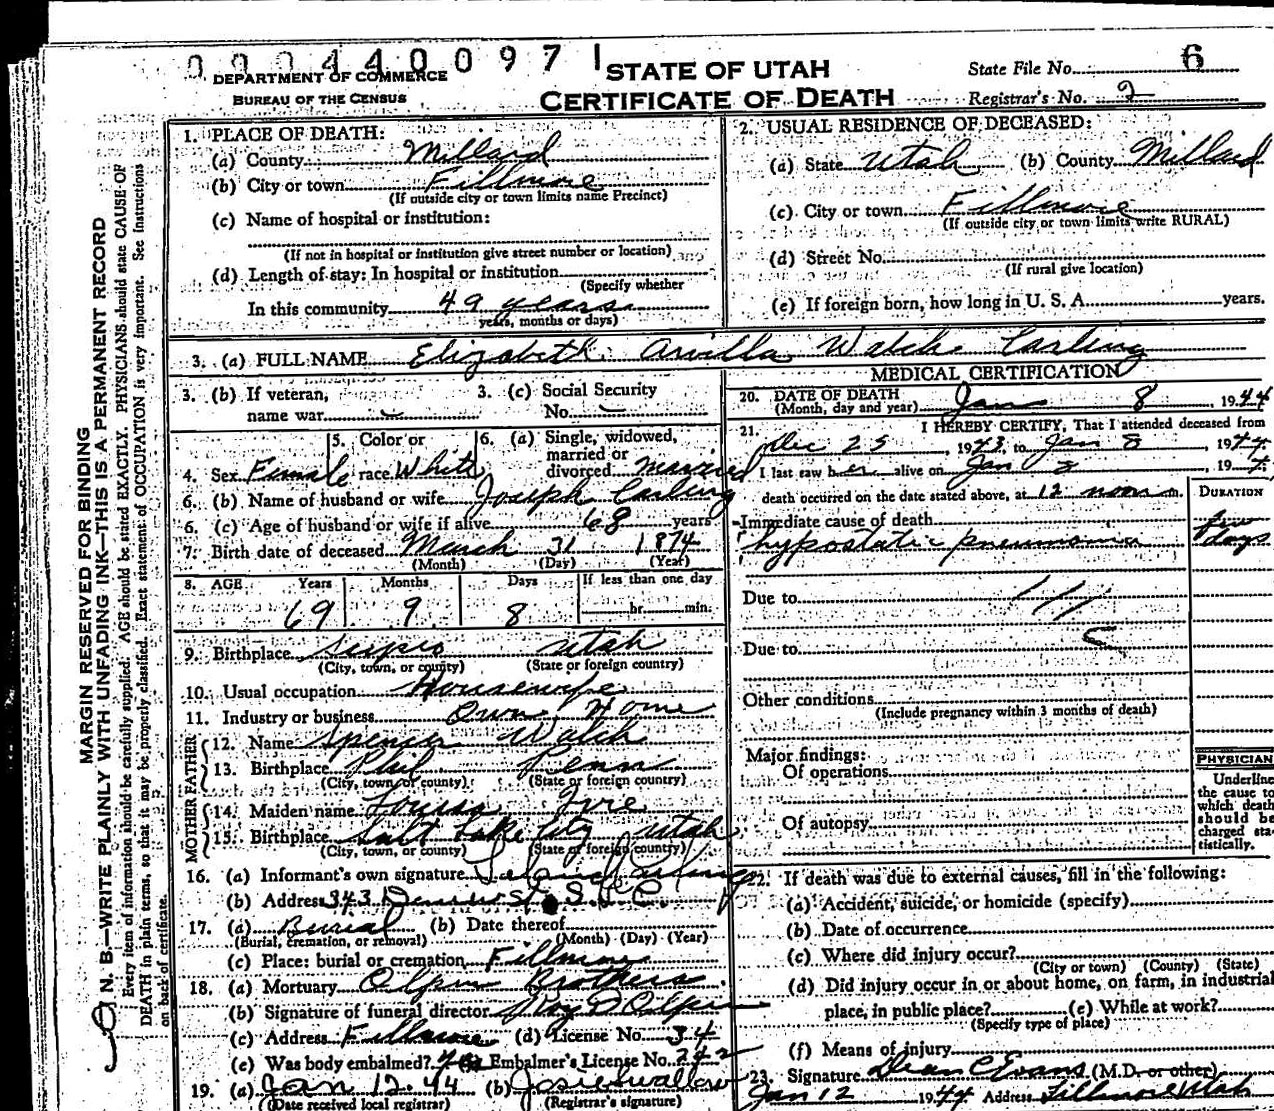 000440097 1
DEPARTMENT OF COMMERCE
BUREAU OF THE CENSUS
STATE OF UTAH
CERTIFICATE OF DEATH
State File No. 6
Registrar's No. 2
MARGIN RESERVED FOR BINDING
N. B.—WRITE PLAINLY WITH UNFADING INK—THIS IS A PERMANENT RECORD
Every item of information should be carefully supplied. AGE should be stated EXACTLY. PHYSICIANS should state CAUSE OF
DEATH in plain terms, so that it may be properly classified. Exact statement of OCCUPATION is very important. See Instructions
on back of certificate.
1. PLACE OF DEATH:
(a) County Millard
(b) City or town Fillmore
(If outside city or town limits name Precinct)
(c) Name of hospital or institution:
(If not in hospital or institution give street number or location)
(d) Length of stay: In hospital or institution
(Specify whether
In this community 49 years
years, months or days)
2. USUAL RESIDENCE OF DECEASED:
(a) State Utah (b) County Millard
(c) City or town Fillmore
(If outside city or town limits write RURAL)
(d) Street No.
(If rural give location)
(e) If foreign born, how long in U. S. A. years.
3. (a) FULL NAME Elizabeth Arvilla Walch Carling
3. (b) If veteran, name war
3. (c) Social Security No.
4. Sex Female 5. Color or race White 6. (a) Single, widowed, married or divorced married
6. (b) Name of husband or wife Joseph Carling
6. (c) Age of husband or wife if alive 68 years
7. Birth date of deceased March 31 1874
(Month) (Day) (Year)
8. AGE Years Months Days If less than one day
69 9 8 hr. min.
9. Birthplace Scipio Utah
(City, town, or county) (State or foreign country)
10. Usual occupation Housewife
11. Industry or business Own Home
FATHER
12. Name Spencer Walch
13. Birthplace Phil Penn
(City, town, or county) (State or foreign country)
MOTHER
14. Maiden name Louisa Ivie
15. Birthplace Salt Lake City Utah
(City, town, or county) (State or foreign country)
16. (a) Informant's own signature Carling
(b) Address 343 St. S.L.C.
17. (a) Burial (b) Date thereof
(Burial, cremation, or removal) (Month) (Day) (Year)
(c) Place: burial or cremation Fillmore
18. (a) Mortuary Olpin Brothers
(b) Signature of funeral director Roy D Olpin
(c) Address Fillmore (d) License No. 34
(e) Was body embalmed? Yes Embalmer's License No. 242
19. (a) Jan 12-44 (b) Josie Swallow
(Date received local registrar) (Registrar's signature)
MEDICAL CERTIFICATION
20. DATE OF DEATH
(Month, day and year) Jan 8, 1944
21. I HEREBY CERTIFY, That I attended deceased from
Dec 25 1943, to Jan 8 1944
I last saw her alive on Jan 8, 194
death occurred on the date stated above, at 12 noon m.
DURATION
Immediate cause of death
hypostatic pneumonia few days
Due to
Due to
Other conditions
(Include pregnancy within 3 months of death)
Major findings:
Of operations
Of autopsy
PHYSICIAN
Underline
the cause to
which death
should be
charged sta-
tistically.
22. If death was due to external causes, fill in the following:
(a) Accident, suicide, or homicide (specify)
(b) Date of occurrence
(c) Where did injury occur?
(City or town) (County) (State)
(d) Did injury occur in or about home, on farm, in industrial
place, in public place? (e) While at work?
(Specify type of place)
(f) Means of injury
23. Signature Dean C Evans (M.D. or other)
Jan 12 1944 Address Fillmore Utah